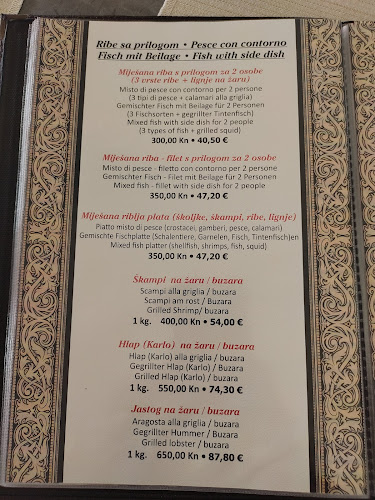 Ribe sa prilogom • Pesce con contorno
Fisch mit Beilage • Fish with side dish
Miješana riba s prilogom za 2 osobe
(3 vrste ribe + lignje na žaru)
Misto di pesce con contorno per 2 persone
(3 tipi di pesce + calamari alla griglia)
Gemischter Fisch mit Beilage für 2 Personen
(3 Fischsorten + gegrillter Tintenfisch)
Mixed fish with side dish for 2 people
(3 types of fish + grilled squid)
300,00 Kn • 40,50 €
Miješana riba - filet s prilogom za 2 osobe
Misto di pesce - filetto con contorno per 2 persone
Gemischter Fisch - Filet mit Beilage für 2 Personen
Mixed fish - fillet with side dish for 2 people
350,00 Kn • 47,20 €
Miješana riblja plata (školjke, škampi, ribe, lignje)
Piatto misto di pesce (crostacei, gamberi, pesce, calamari)
Gemischte Fischplatte (Schalentiere, Garnelen, Fisch, Tintenfisch)en
Mixed fish platter (shellfish, shrimps, fish, squid)
350,00 Kn • 47,20 €
Škampi na žaru / buzara
Scampi alla griglia / buzara
Scampi am rost / Buzara
Grilled Shrimp/ buzara
1 kg. 400,00 Kn • 54,00 €
Hlap (Karlo) na žaru / buzara
Hlap (Karlo) alla griglia / buzara
Gegrillter Hlap (Karlo) / Buzara
Grilled Hlap (Karlo) / buzara
1 kg. 550,00 Kn • 74,30 €
Jastog na žaru / buzara
Aragosta alla griglia / buzara
Gegrillter Hummer / Buzara
Grilled lobster / buzara
1 kg. 650,00 Kn • 87,80 €